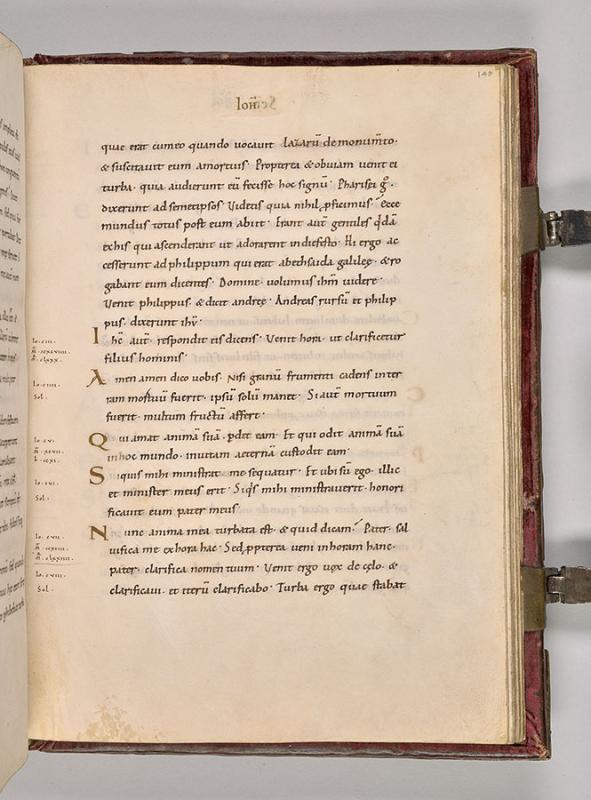 149
Ioh̄
quae erat cum eo quando vocavit lazarū de monum̄to·
& suscitavit eum a mortuis· Propterea & obviam venit ei
turba· quia audierunt eū fecisse hoc signū· Pharisei g̊·
dixerunt ad semetipsos· Videtis quia nihil ꝓficimus· Ecce
mundus totus post eum abiit· Erant aut̄ gentiles q̄dā
ex his qui ascenderant ut adorarent in die festo· Hi ergo ac
cesserunt ad philippum qui erat a bethsaida galileę· & ro
gabant eum dicentes· Domine· volumus ihm̄ videre·
Venit philippus· & dicit andreę· Andreas rursū et philip
pus· dixerunt ihv̄·
Ihc̄ aut̄· respondit eis dicens· Venit hora· ut clarificetur
filius hominis·
Amen amen dico vobis· Nisi granū frumenti cadens in ter
ram mortuū fuerit· ipsū solū manet· Si aut̄ mortuum
fuerit· multum fructū affert·
Qui amat animā suā· ꝑdet eam· Et qui odit animā suā
in hoc mundo· in vitam aeternā custodit eam·
Si quis mihi ministrat· me sequatur· Et ubi sū ego· illic
et minister meus erit· Si qs mihi ministraverit· honori
ficavit eum pater meus·
Nunc anima mea turbata est· & quid dicam? Pater· sal
vifica me ex hora hac· Sed ꝓpterea veni in horam hanc·
pater· clarifica nomen tuum· Venit ergo vox de cęlo· &
clarificavi· et iterū clarificabo· Turba ergo quae stabat
Sol·
Sol·
Sol·